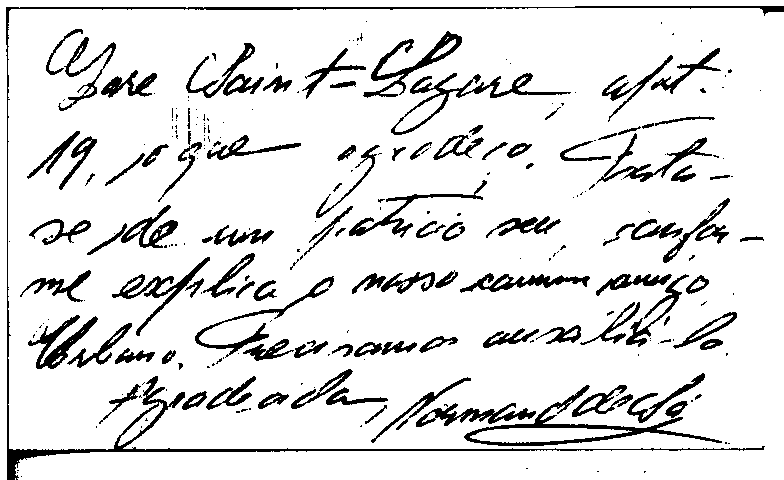 Gare Saint-Lazare, apat.
19, o que agradeço. Trata-
se de um patricio seu, confor-
me explica o nosso comum amigo
Urbano. Precisamos auxiliá-lo.
Agradecida,